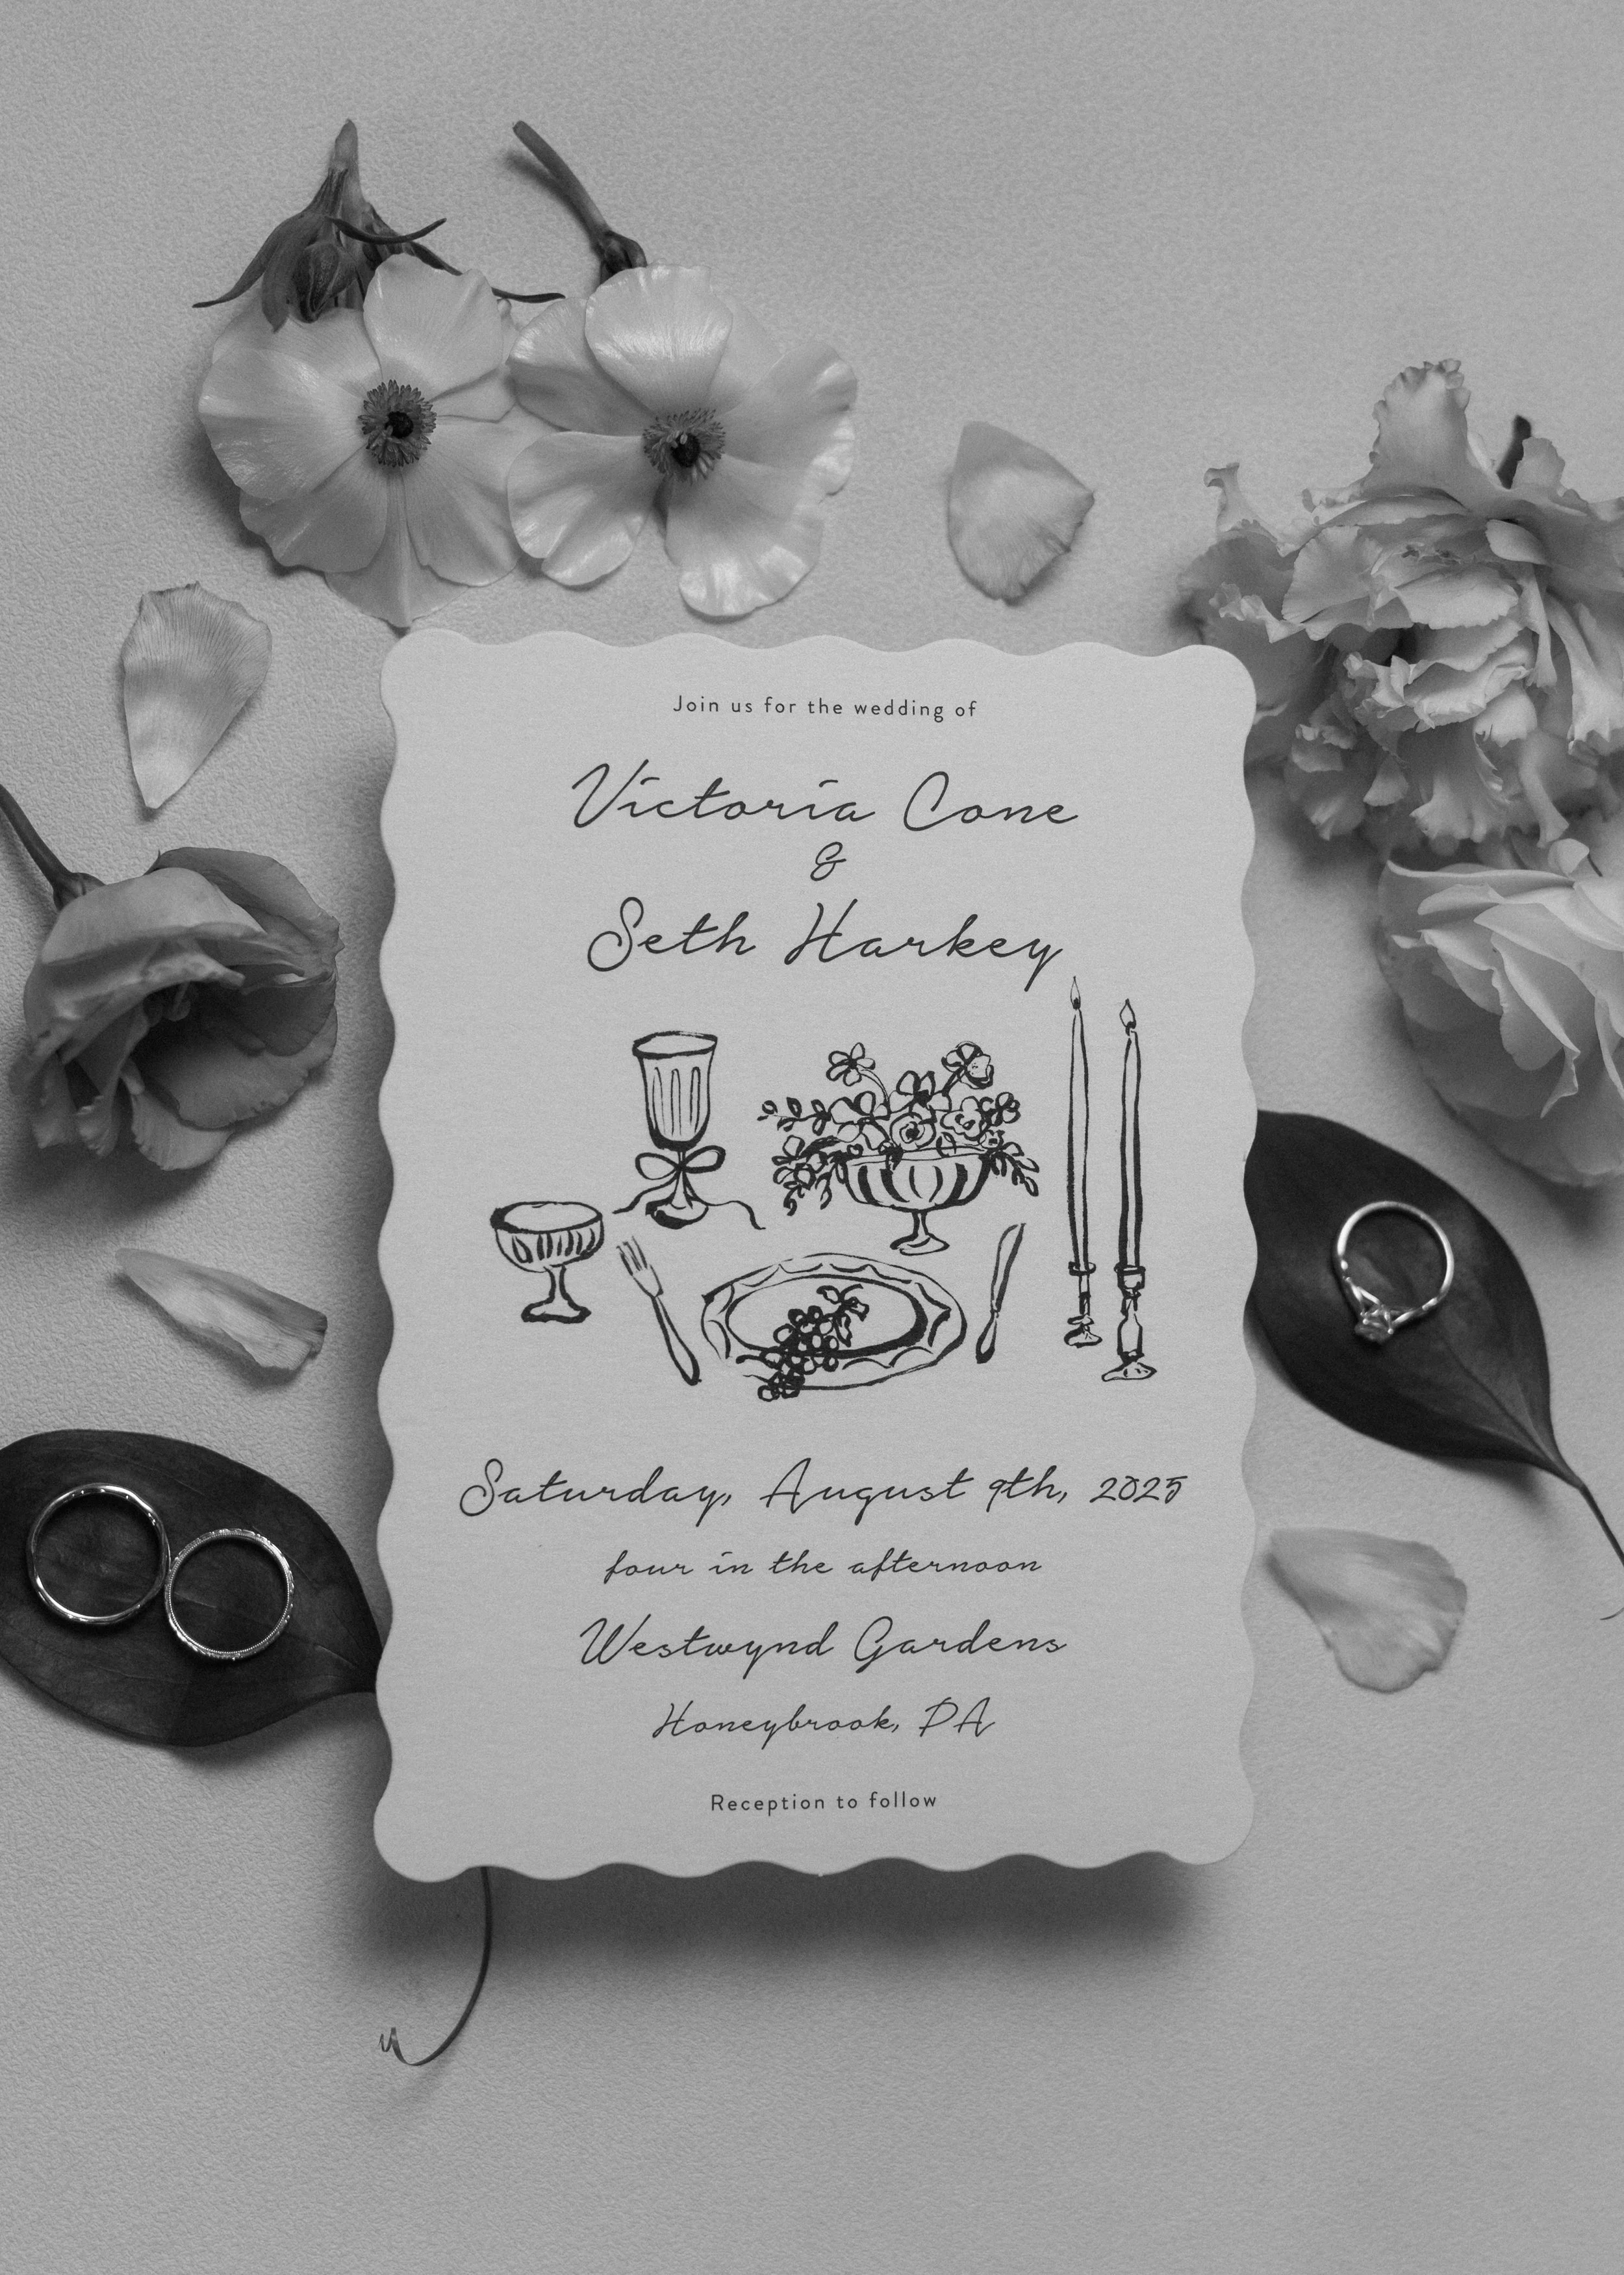 Join us for the wedding of
Victoria Cone
&
Seth Harkey
Saturday, August 9th, 2025
four in the afternoon
Westwynd Gardens
Honeybrook, PA
Reception to follow